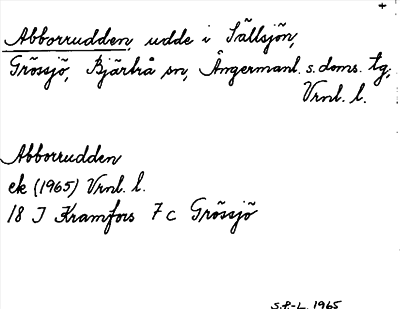 +
Abborrudden, udde i Sällsjön,
Grössjö, Bjärtrå sn, Ångermanl. s. doms. tg,
Vrnl. l.
Abborrudden
ek (1965) Vrnl. l.
18 J Kramfors 7 c Grössjö
S.P.-L. 1965